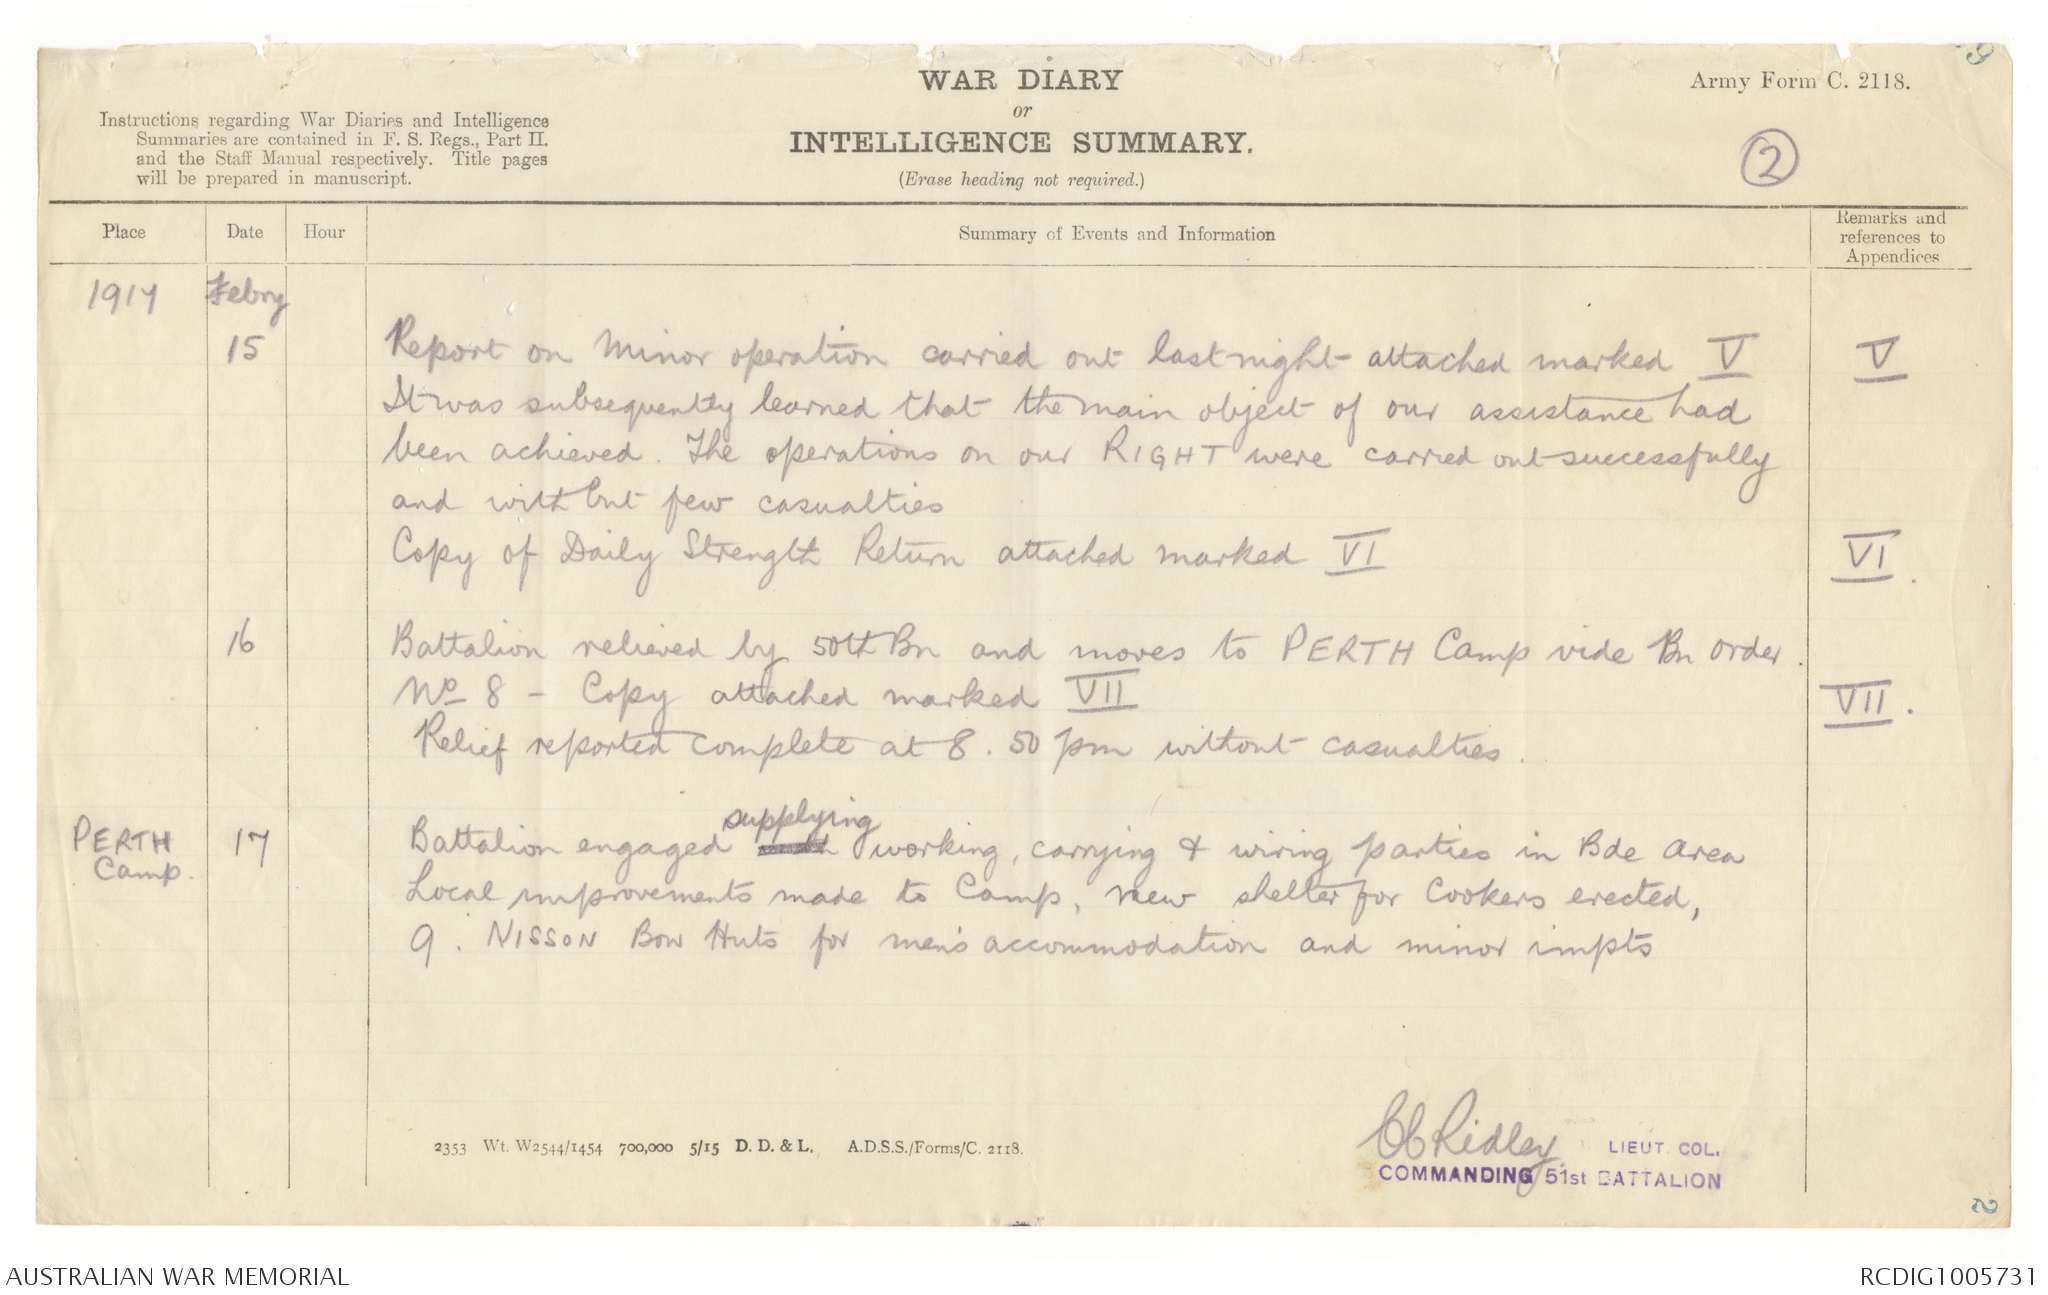 WAR DIARY
or
INTELLIGENCE SUMMARY.
(Erase heading not required.)
Army Form C. 2118.
Instructions regarding War Diaries and Intelligence
Summaries are contained in F. S. Regs., Part II.
and the Staff Manual respectively. Title pages
will be prepared in manuscript.
2
Place Date Hour Summary of Events and Information Remarks and references to Appendices
1917 Febry
15 Report on Minor operation carried out last night attached marked V V
It was subsequently learned that the main object of our assistance had
been achieved. The operations on our RIGHT were carried out successfully
and with but few casualties
Copy of Daily Strength Return attached marked VI VI.
16 Battalion relieved by 50th Bn and moves to PERTH Camp vide Bn Order.
No 8 - Copy attached marked VII VII.
Relief reported complete at 8.50 pm without casualties.
supplying
PERTH 17 Battalion engaged working, carrying & wiring parties in Bde Area
Camp. Local improvements made to Camp, new shelter for Cookers erected,
9. NISSON Bow Huts for men's accommodation and minor impts
2353 Wt. W2544/1454 700,000 5/15 D. D. & L. A.D.S.S./Forms/C. 2118.
CC Ridley LIEUT. COL.
COMMANDING 51st BATTALION
AUSTRALIAN WAR MEMORIAL RCDIG1005731